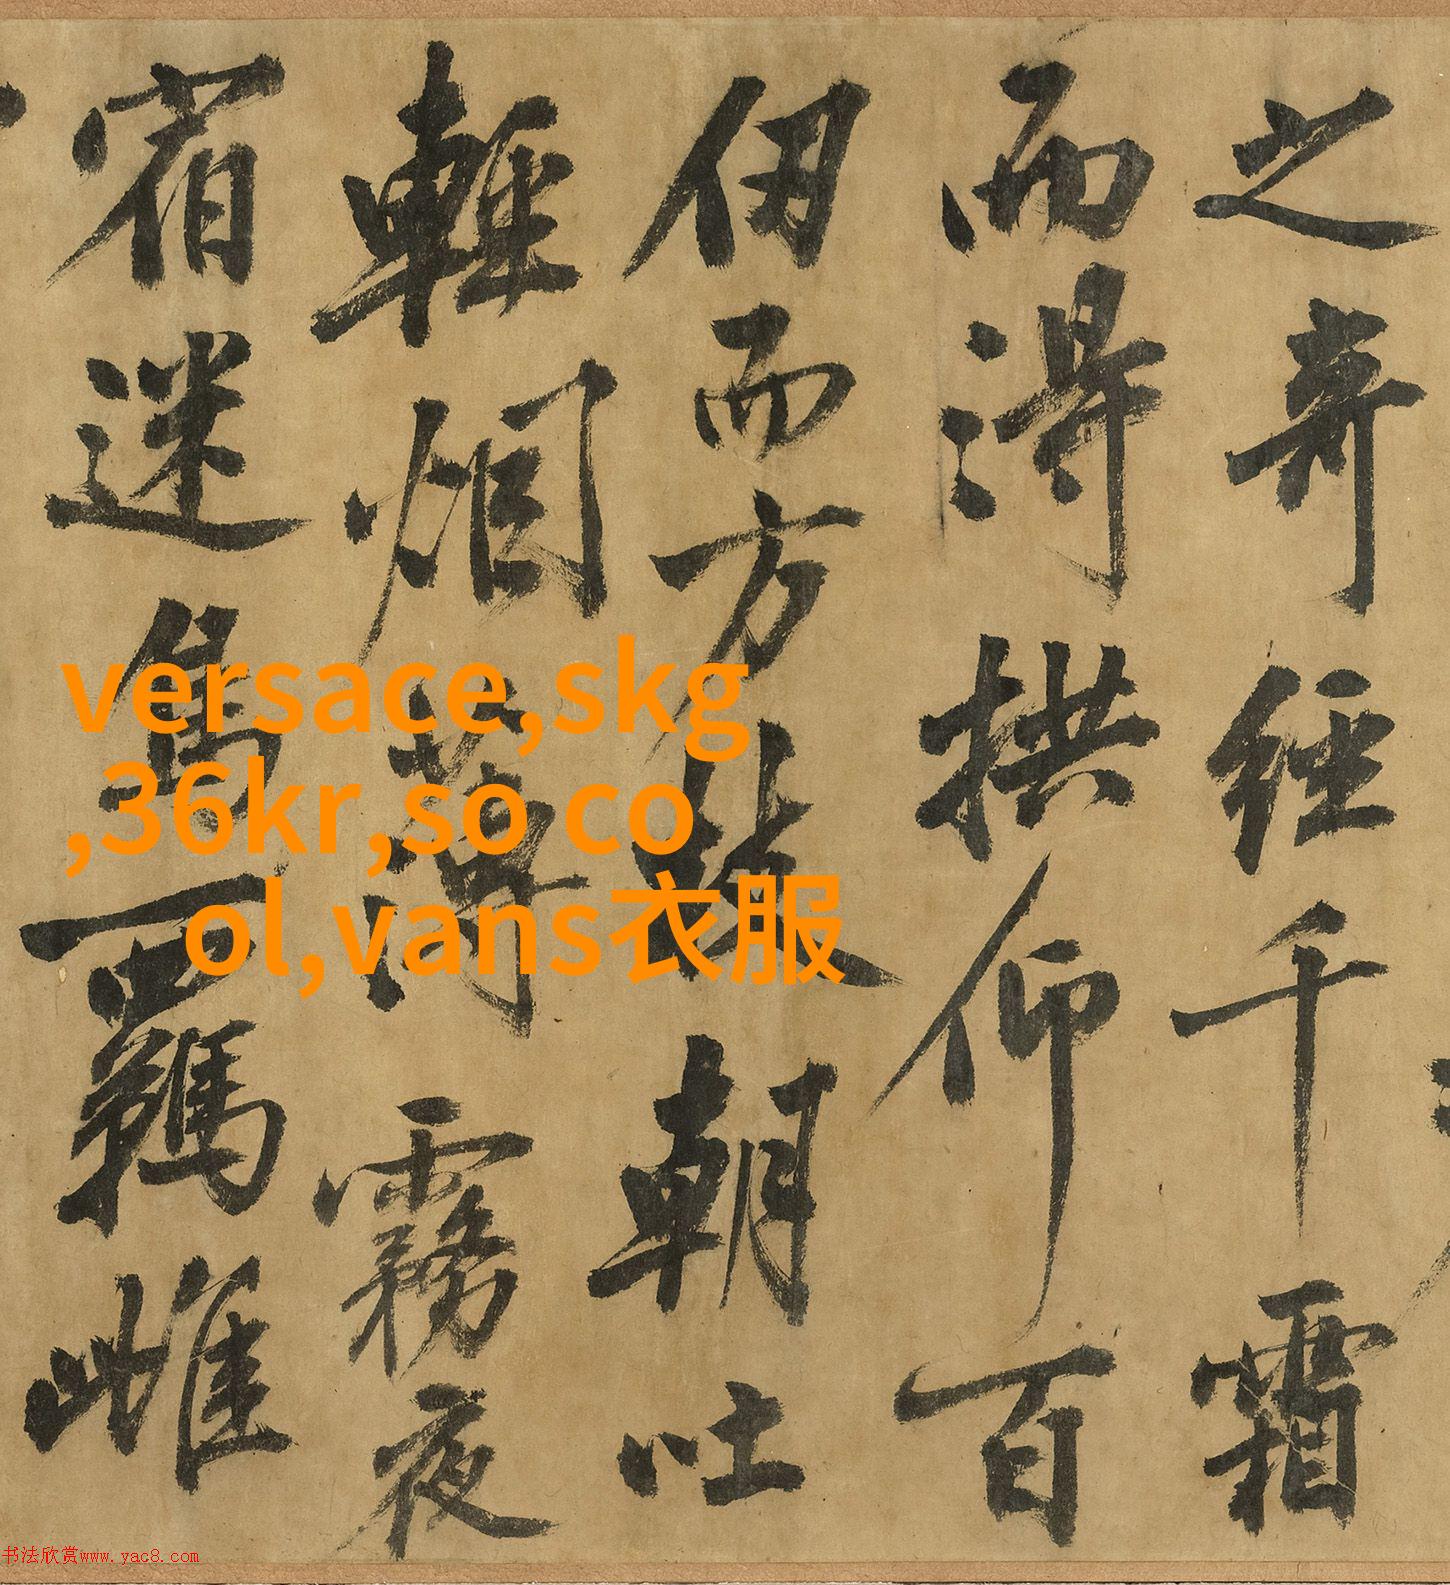 之奇經千霜
而得拱仰百
仞而方枝朝吐
輕烟薄霧夜
宿迷鳥羈雌
versace,skg
,36kr,so co
ol,vans衣服
书法欣赏www.yac8.com